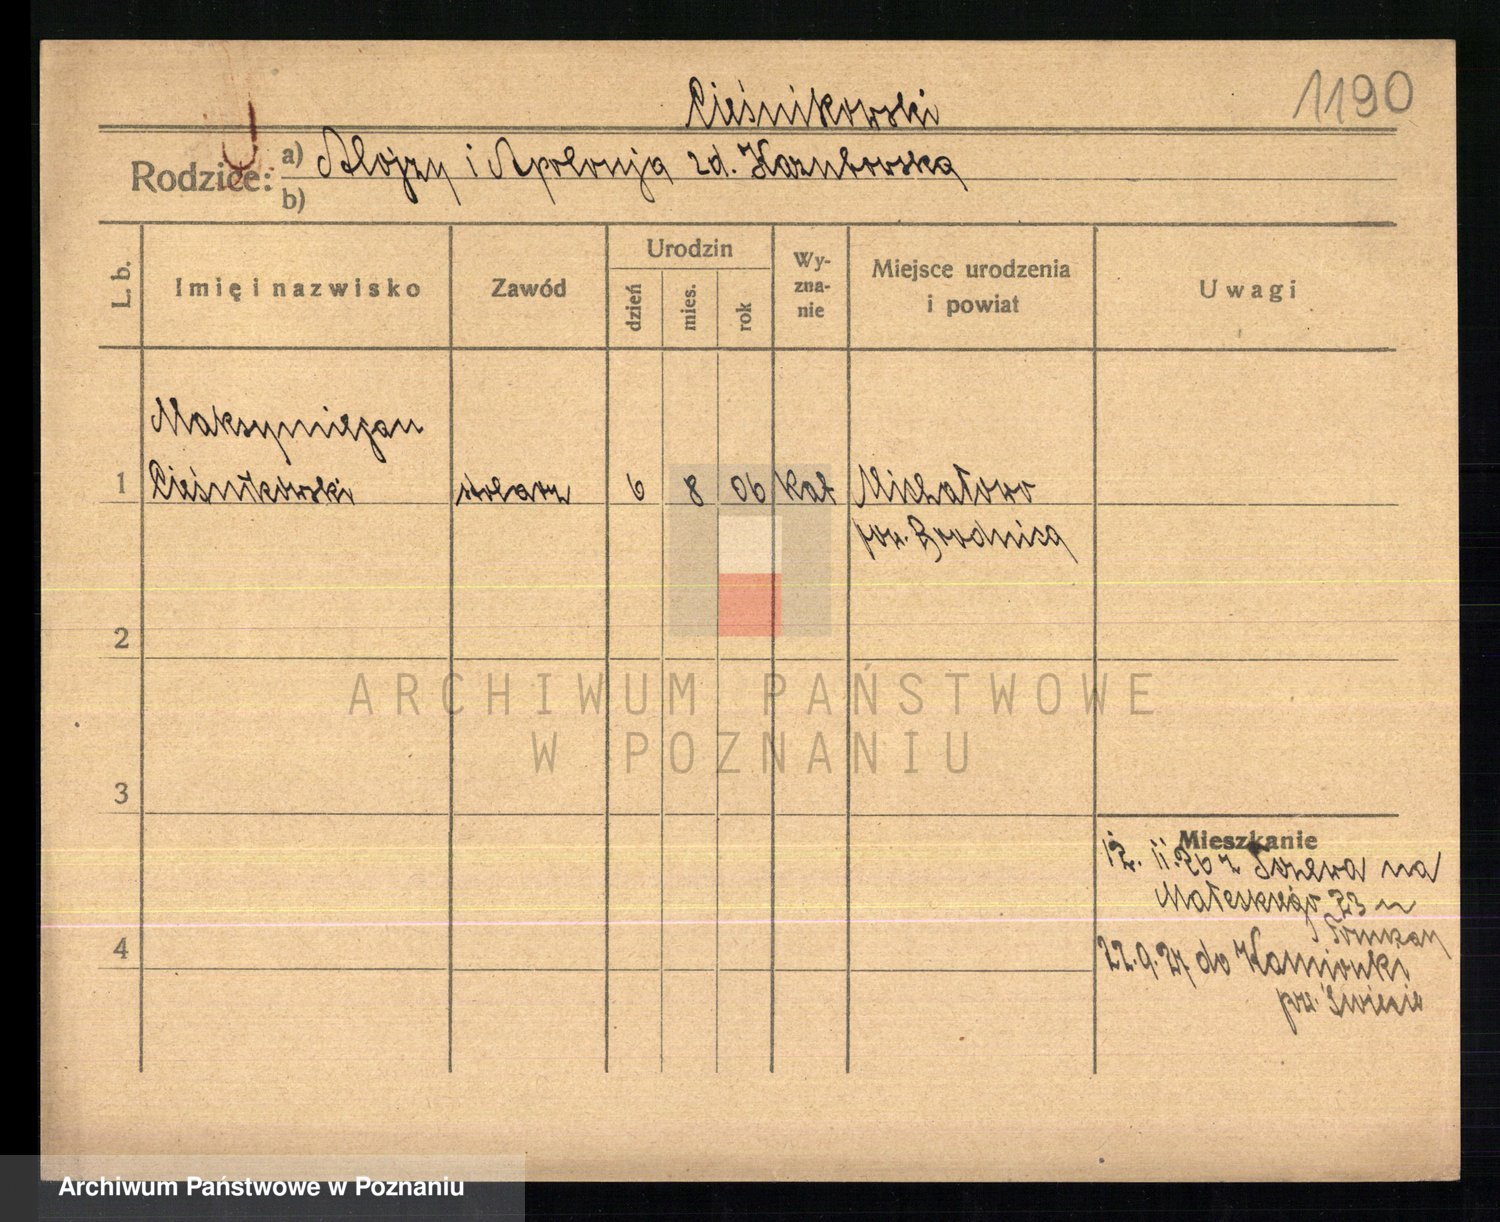 Cieśnikowski
1190
Rodzice: a) Alojzy i Apolonja zd.
b)
L. b.
Imię i nazwisko
Zawód
Urodzin
dzień
mies.
rok
Wy-
zna-
nie
Miejsce urodzenia
i powiat
Uwagi
Maksymiljan
1 Cieśnikowski stolarz 6 8 06 kat Michałowo
pow. Brodnica
2
ARCHIWUM PAŃSTWOWE
W POZNANIU
3
Mieszkanie
12. 11. 26 z Tczewa na
23
4
22.9.27 do Kamionki
pow. Świecie
Archiwum Państwowe w Poznaniu